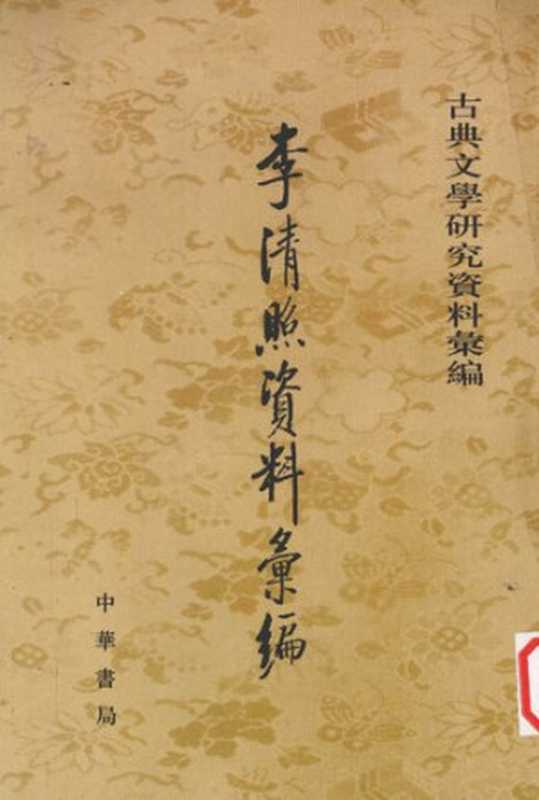 古典文學研究資料彙編
李清照資料彙編
中華書局